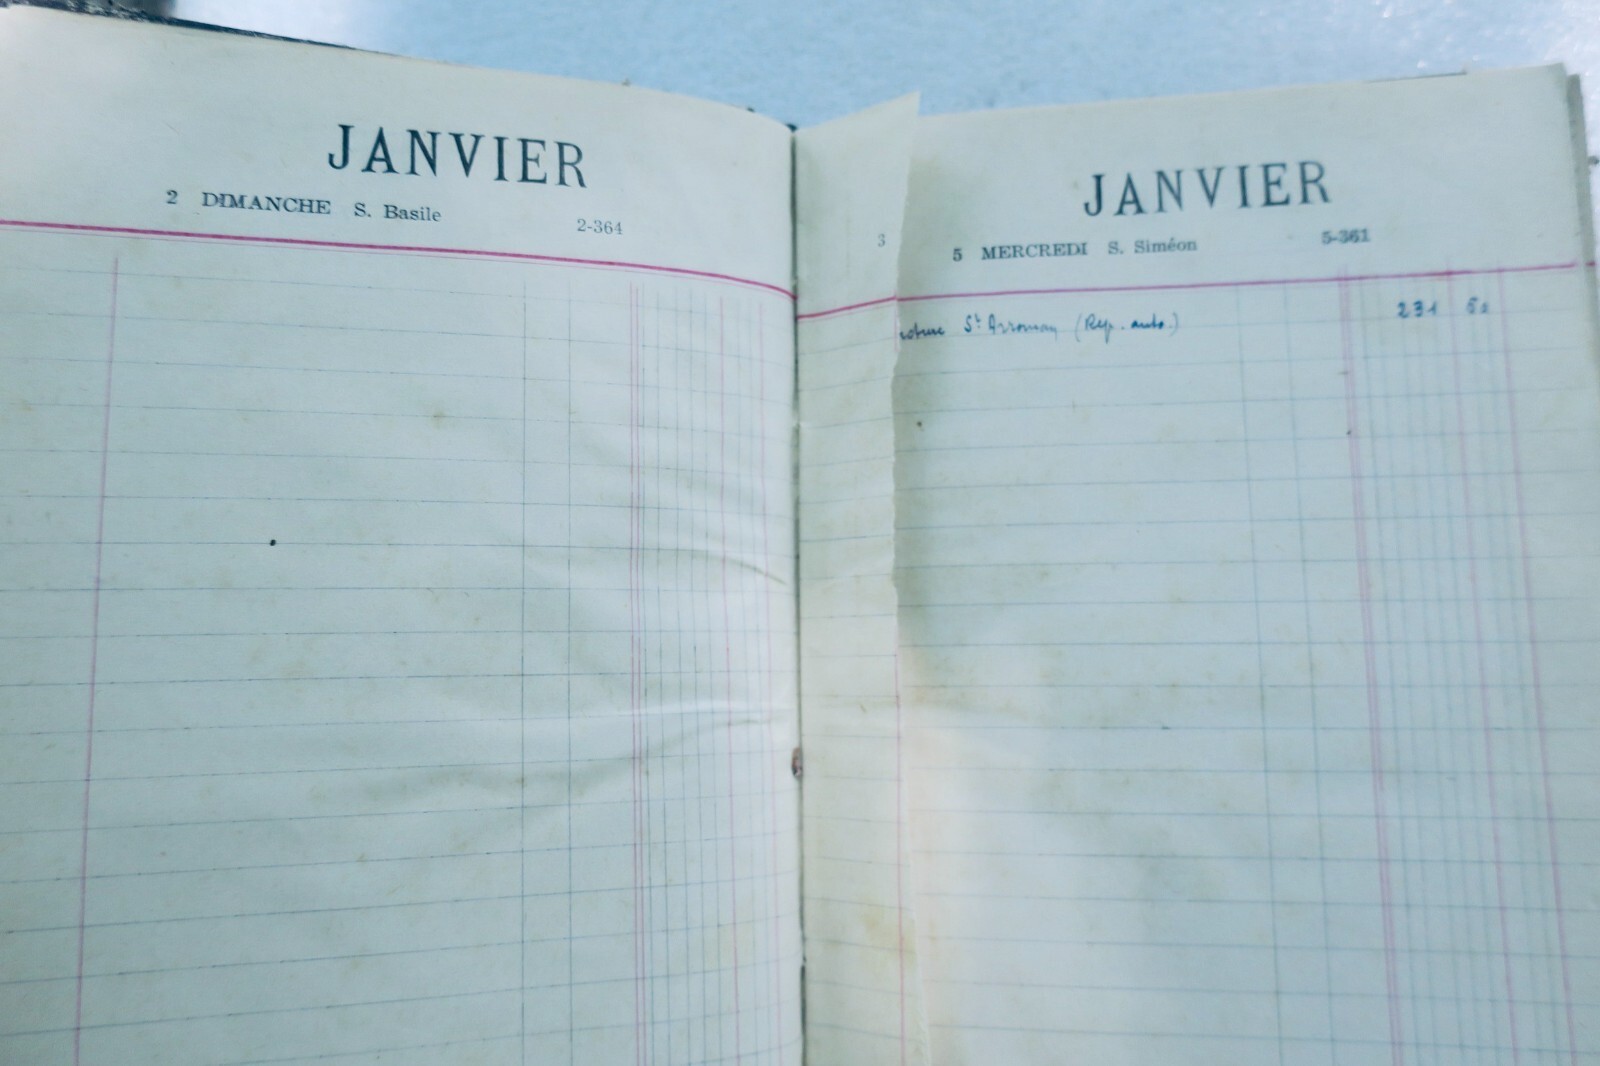 JANVIER
2 DIMANCHE S. Basile 2-364
3
JANVIER
5 MERCREDI S. Siméon 5-361
St (Rep. auto.) 231 50